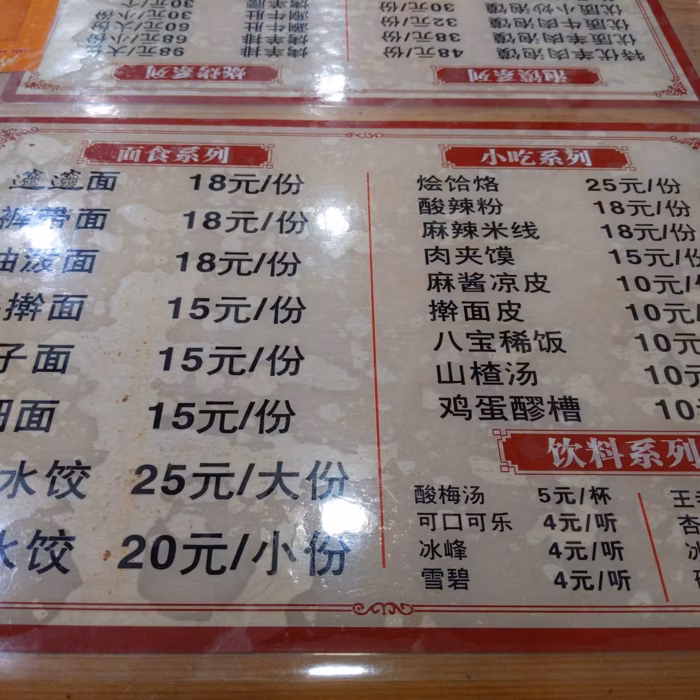 泡馍系列
特优羊肉泡馍 48元/份
优质羊肉泡馍 38元/份
优质牛肉泡馍 32元/份
优质小炒泡馍 30元/份
烧烤系列
烤羊排 98元/大
烤羊排 68元/小份
涮牛肚 60元/大份
涮牛肚 30元/小份
30元/个
面食系列
𰻝𰻝面 18元/份
裤带面 18元/份
油泼面 18元/份
擀面 15元/份
子面 15元/份
面 15元/份
水饺 25元/大份
水饺 20元/小份
小吃系列
烩饸烙 25元/份
酸辣粉 18元/份
麻辣米线 18元/份
肉夹馍 15元/份
麻酱凉皮 10元/
擀面皮 10元/
八宝稀饭 10元
山楂汤 10元
鸡蛋醪槽 10
饮料系列
酸梅汤 5元/杯 王
可口可乐 4元/听 杏
冰峰 4元/听
雪碧 4元/听